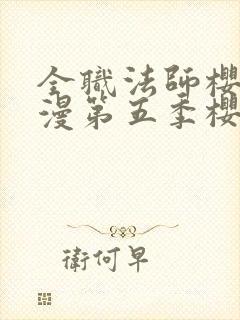 全職法師櫻
漫第五季櫻
衛何早